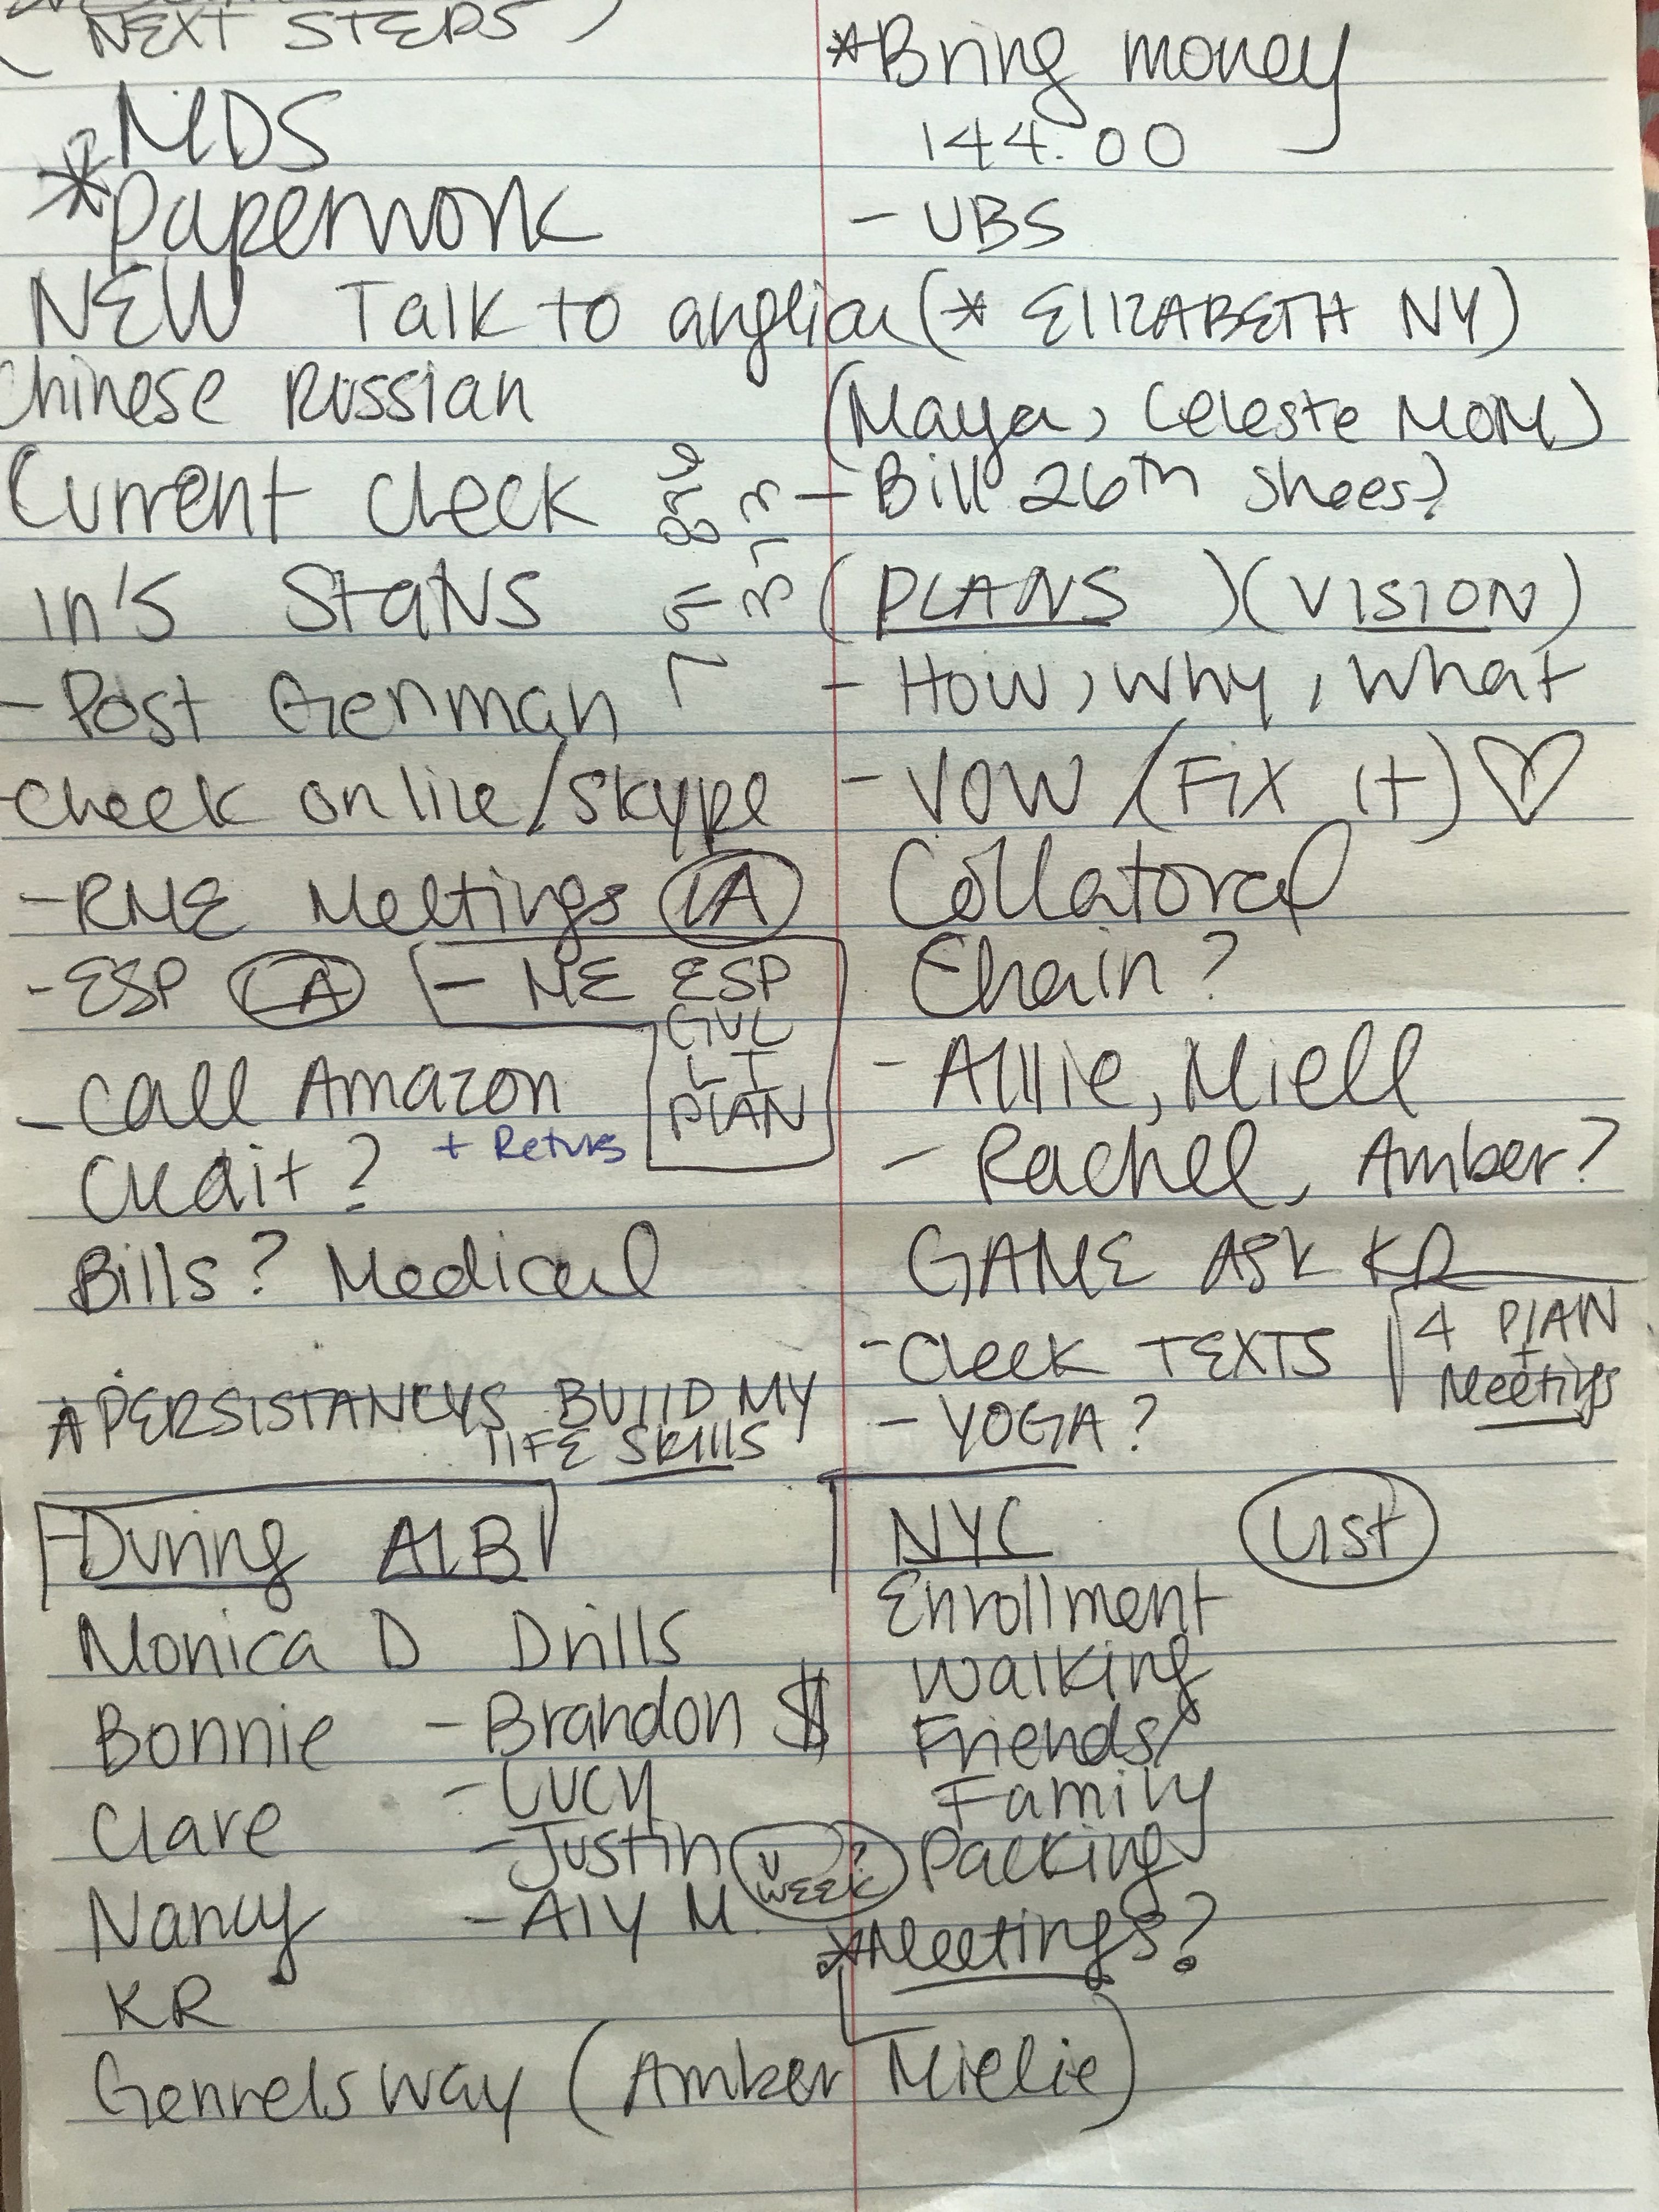 (NEXT STEPS)
MDS
* Paperwork
NEW Talk to
Chinese Russian
Current check
in's Status
- Post German
- Check online/Skype
- RME Meetings LA
- ESP LA
- ME ESP
GVL
LI
PLAN
- Call Amazon
Credit? + Returns
Bills? Medical
PERSISTANCYS BUILD MY
LIFE SKILLS
* Bring money
144.00
- UBS
(* ElIZABETH NY)
(Maya, Celeste MOM)
- Bill 26th Shoes?
(PLANS) (VISION)
- How, Why, What
- VOW (Fix it) ♡
Collatoral
Chain?
- Allie, Miell
- Rachel, Amber?
GAME ASK KR
- Check TEXTS
4 PLAN
+
Meetings
- YOGA?
- During ALB
Monica D Drills
Bonnie - Brandon $
- Lucy
Clare
- Justin
WEEK
Nancy - Aly M.
KR
way (Amber Mielie)
NYC List
Enrollment
Walking
Friends/
Family
Packing
* Meetings?